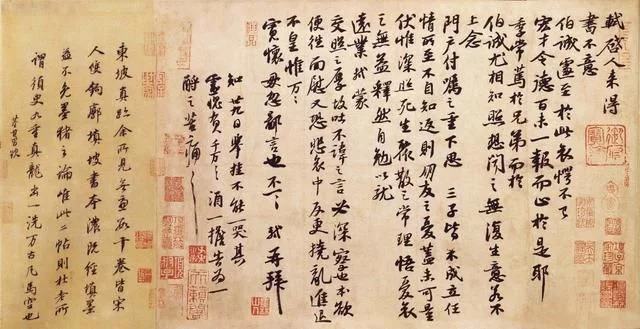 軾啓人來得
書不意
伯誠遽至於此哀愕不已
宏才令德百未一報而止於是耶
季常篤於兄弟而於
伯誠尤相知照想聞之無復生意若不
上念
門戶付囑之重下思三子皆不成立任
情所至不自知返則朋友之憂蓋未可量
伏惟深照死生聚散之常理悟憂哀
之無益釋然自勉以就
遠業軾蒙
交照之厚故吐不諱之言必深察也本欲
便往面慰又恐悲哀中反更撓亂進退
不皇惟萬萬
寬懷毋忽鄙言也不一一軾再拜
知廿九日舉掛不能一哭其
靈愧負千萬千萬酒一擔告為一
酹之苦痛苦痛
東坡真蹟余所見無慮數十卷皆宋
人雙鉤廓填坡書本濃既經填墨
益不免墨豬之論惟此二帖則杜老所
謂須臾九重真龍出一洗萬古凡馬空也
董其昌跋